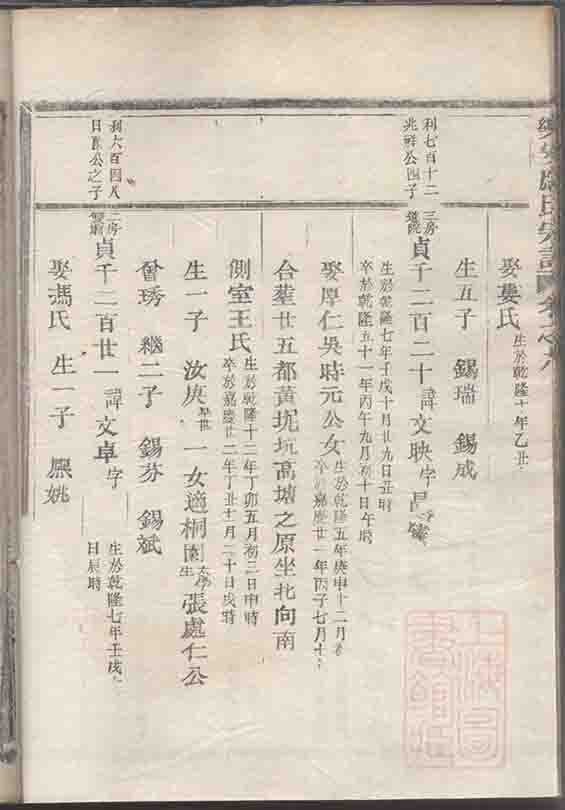 娶婁氏 生於乾隆十年乙丑
生五子 錫瑞 錫成
利七百十二 三房
兆祥公四子
貞千二百二十 諱文映 字昌
生於乾隆七年壬戌十月廿九日丑時
卒於乾隆五十一年丙午九月初十日午時
娶厚仁吳時元公女 生於乾隆五年庚申十二月
卒於嘉慶廿一年丙子七月十
合葬廿五都黃坭坑高塘之原坐北向南
側室王氏 生於乾隆十二年丁卯五月初三日申時
卒於嘉慶廿二年丁丑十一月二十日戌時
生一子 汝庚 早世 一女適桐園 太學生 張處仁公
琇 繼二子 錫芬 錫斌
利六百四八 二房
日 公之子
貞千二百廿一 諱文卓 字
生於乾隆七年壬戌
日辰時
娶馮氏 生一子 熙姚
上海圖書館藏